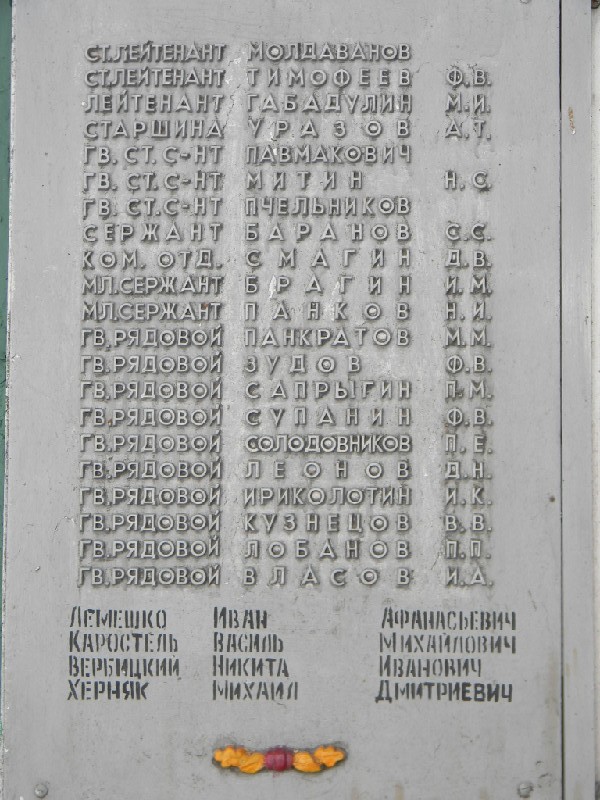 СТ.ЛЕЙТЕНАНТ МОЛДАВАНОВ
СТ.ЛЕЙТЕНАНТ ТИМОФЕЕВ Ф.В.
ЛЕЙТЕНАНТ ГАБАДУЛИН М.И.
СТАРШИНА УРАЗОВ А.Т.
ГВ. СТ. С-НТ ПАВМАКОВИЧ
ГВ. СТ. С-НТ МИТИН Н.С.
ГВ. СТ. С-НТ ПЧЕЛЬНИКОВ
СЕРЖАНТ БАРАНОВ С.С.
КОМ. ОТД. СМАГИН Д.В.
МЛ.СЕРЖАНТ БРАГИН И.М.
МЛ.СЕРЖАНТ ПАНКОВ Н.И.
ГВ.РЯДОВОЙ ПАНКРАТОВ М.М.
ГВ.РЯДОВОЙ ЗУДОВ Ф.В.
ГВ.РЯДОВОЙ САПРЫГИН П.М.
ГВ.РЯДОВОЙ СУПАНИН Ф.В.
ГВ.РЯДОВОЙ СОЛОДОВНИКОВ П.Е.
ГВ.РЯДОВОЙ ЛЕОНОВ Д.Н.
ГВ.РЯДОВОЙ ИРИКОЛОТИН И.К.
ГВ.РЯДОВОЙ КУЗНЕЦОВ В.В.
ГВ.РЯДОВОЙ ЛОБАНОВ П.П.
ГВ.РЯДОВОЙ ВЛАСОВ И.А.
ЛЕМЕШКО ИВАН АФАНАСЬЕВИЧ
КАРОСТЕЛЬ ВАСИЛЬ МИХАЙЛОВИЧ
ВЕРБИЦКИЙ НИКИТА ИВАНОВИЧ
ХЕРНЯК МИХАИЛ ДМИТРИЕВИЧ